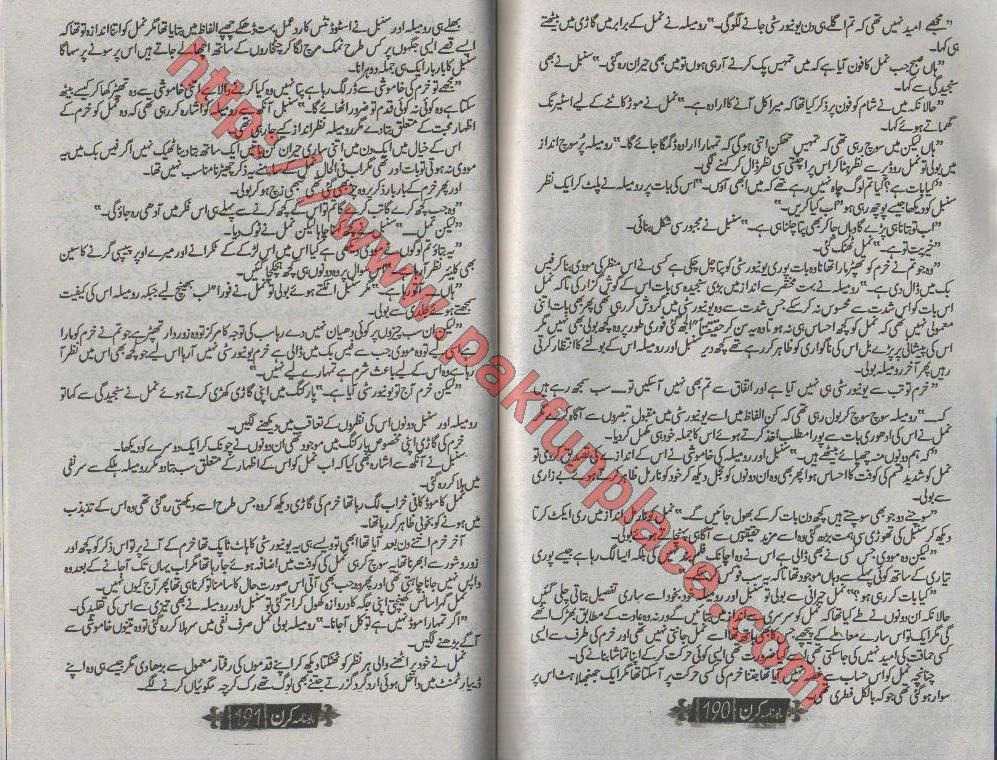 "مجھے امید نہیں تھی کہ تم اگلے ہی دن یونیورسٹی جانے لگو گی۔" رومیلہ نے نمل کے برابر میں گاڑی میں بیٹھتے
ہی کہا۔
"ہاں صبح جب نمل کا فون آیا ہے کہ میں تمہیں پک کرنے آ رہی ہوں تو میں بھی حیران رہ گئی۔" سنبل نے بھی
سنجیدگی سے کہا۔
"حالانکہ میں نے شام کو فون پر ذکر کیا تھا کہ میرا کل آنے کا ارادہ ہے۔" نمل نے موڑ کاٹنے کے لیے اسٹیرنگ
گھماتے ہوئے کہا۔
"ہاں لیکن میں سوچ رہی تھی کہ تمہیں تھکن اتنی ہو گی کہ تمہارا ارادہ ڈگمگا جائے گا۔" رومیلہ پر سوچ انداز
میں بولی تو نمل روڈ پر سے نظر ہٹا کر اس پر اچٹتی سی نظر ڈال کر کہنے لگی۔
"کیا بات ہے؟ کیا تم لوگ چاہ نہیں رہے تھے کہ میں ابھی آؤں۔" اس کی بات پر رومیلہ نے پلٹ کر ایک نظر
سنبل کو دیکھا جیسے پوچھ رہی ہو "اب کیا کریں۔"
"اب تو بتانا ہی پڑے گا وہاں جا کر بھی پتا چلنا ہی ہے۔" سنبل نے مجبور سی شکل بنائی۔
"خیریت تو ہے۔" نمل ٹھٹک گئی۔
"وہ جو تم نے خرم کو تھپڑ مارا تھا نا وہ بات پوری یونیورسٹی کو پتا چل چکی ہے کسی نے اس منظر کی مووی بنا کر فیس
بک میں ڈال دی ہے۔" رومیلہ نے بہت مختصر سے انداز میں بڑی سنجیدہ سی بات اس کے گوش گزاری تاکہ نمل
اس بات کو اس شدت سے محسوس نہ کر سکے جس شدت سے وہ یونیورسٹی میں گردش کر رہی تھی پھر بھی بات اتنی
معمولی نہیں تھی کہ نمل کو کچھ احساس ہی نہ ہوتا وہ یہ سن کر حقیقتاً الجھ گئی فوری طور پر وہ کچھ بولی بھی نہیں مگر
اس کی پیشانی پر پڑے بل اس کی ناگواری کو ظاہر کر رہے تھے کچھ دیر سنبل اور رومیلہ اس کے بولنے کا انتظار کرتی
رہیں پھر آخر رومیلہ بولی۔
"خرم تو تب سے یونیورسٹی ہی نہیں آیا ہے اور اتفاق سے تم بھی نہیں آ سکیں تو۔۔۔ سب سمجھ رہے ہیں
کہ۔۔۔" رومیلہ سوچ سوچ کر بول رہی تھی کہ کن الفاظ میں اسے یونیورسٹی میں مقبول تبصروں سے آگاہ کرے کہ
نمل نے اس کی ادھوری بات سے پورا مطلب اخذ کرتے ہوئے اس کا جملہ خود ہی مکمل کر دیا۔
"کہ ہم دونوں منہ چھپائے بیٹھے ہیں۔" سنبل اور رومیلہ کی خاموشی نے اس کے اندازے کی تصدیق کر دی تو
نمل کو شدید قسم کی کوفت کا احساس ہوا پھر بھی وہ ان دونوں کو خجل دیکھ کر خود کو نارمل ظاہر کرتے ہوئے بے زاری
سے بولی۔
"سوچنے دو جو بھی سوچتے ہیں کچھ دن بات کر کے بھول جائیں گے۔" نمل کو نارمل انداز میں ری ایکٹ کرتا
دیکھ کر سنبل کی تھوڑی سی ہمت بڑھ گئی وہ اسے مزید حقیقتوں سے آگاہی بولی۔
"لیکن وہ مووی جس کسی نے بھی ڈالی ہے اس نے وہ اچانک بلکہ ایسا لگ رہا ہے جیسے پوری
تیاری کے ساتھ کوئی پہلے سے وہاں موجود تھا تاکہ یہ سب
"کیا بات کر رہی ہو؟" نمل حیرانی سے بولی تو سنبل اور رومیلہ خود بخود اسے ساری تفصیل بتاتی چلی گئیں
حالانکہ ان دونوں نے طے کیا تھا کہ نمل کو سرسری سے انداز میں بتائیں گے ورنہ وہ عادت کے مطابق بھڑک اٹھے
گی مگر ایک تو اس سارے معاملے کے پیچھے جس اسے نمل جانتی نہیں تھی اور خرم کی طرف سے ایسی
کسی حماقت کی امید نہیں کی جا سکتی تھی ایسی کوئی حرکت کر کے اپنا تماشا بنائے گی۔
چنانچہ نمل کو اس حساب سے غصہ نہیں آیا تھا جتنا خرم کی کسی حرکت پر آ سکتا تھا مگر ایک جھنجلاہٹ اس پر
سوار ہو گئی تھی جو کہ بالکل فطری تھی۔
ماہنامہ کرن 190
بھلے ہی رومیلہ اور سنبل نے اسٹوڈنٹس کا ردعمل بہت ڈھکے چھپے الفاظ میں بتایا تھا مگر نمل کو اتنا اندازہ تو تھا کہ
ایسے قصے ایسی جگہوں پر کس طرح نمک مرچ لگا کر چٹخاروں کے ساتھ اچھالے جاتے ہیں اس پر سونے پر سہاگا
سنبل کا بار بار ایک ہی جملہ دوہرانا۔
"مجھے تو خرم کی خاموشی سے ڈر لگ رہا ہے پتا نہیں وہ کیا کرنے والا ہے اتنی خاموشی سے وہ تھپڑ کھا کر کیسے بیٹھ
سکتا ہے وہ کوئی نہ کوئی قدم تو ضرور اٹھائے گا۔" سنبل رومیلہ کو اشارہ کر رہی تھی کہ وہ نمل کو خرم کے
اظہار محبت کے متعلق بتا دے مگر رومیلہ نظر انداز کیے جا رہی تھی۔
اس کے خیال میں ایک دن میں اتنی ساری حیران کن باتیں ایک ساتھ بتا دینا ٹھیک نہیں اگر فیس بک میں یہ
مووی نہ ہوتی تو بات اور تھی مگر اب فی الحال نمل کے سامنے یہ ذکر چھیڑنا مناسب نہیں تھا۔
اور پھر خرم کے بار بار ذکر پر وہ تھی تبھی زچ ہو کر بولی۔
"وہ جب کچھ کرے گا تب کرے گا تم تو اس کے کچھ کرنے سے پہلے ہی اس فکر میں آدھی رہ جاؤ گی۔"
"لیکن نمل۔۔۔" سنبل نے کچھ کہنا چاہا لیکن نمل نے ٹوک دیا۔
"یہ بتاؤ تم لوگوں نے مووی دیکھی ہے کیا اس میں اس لڑکے کے ٹکرانے اور میرے اوپر پیپسی گرنے کا سین
بھی کلیئر نظر آ رہا سوال پر وہ دونوں ہی کچھ ہچکچا گئیں۔
"ہاں ہے۔" مگر سنبل اٹکتے ہوئے بولی تو نمل نے فوراً لب بھینچ لیے جبکہ رومیلہ اس کی کیفیت
سمجھتے ہوئے جلدی سے بولی۔
"لیکن ان سب چیزوں پر کوئی دھیان نہیں دے رہا سب کی توجہ کا مرکز تو وہ زوردار تھپڑ ہے جو تم نے خرم کو مارا
ہے اس لیے تو وہ مووی جب سے فیس بک میں ڈالی ہے خرم یونیورسٹی نہیں آ رہا اس لیے جو کچھ بھی اس میں نظر آ
رہا ہے وہ اس کے لیے باعث شرم ہے تمہارے لیے نہیں۔"
"لیکن خرم آج تو یونیورسٹی آیا ہے۔" پارکنگ میں اپنی گاڑی کھڑی کرتے ہوئے نمل نے سنجیدگی سے کہا تو
رومیلہ اور سنبل دونوں اس کی نظروں کے تعاقب میں دیکھنے لگیں۔
خرم کی گاڑی اپنی مخصوص پارکنگ میں موجود تھی ان دونوں نے چونک کر ایک دوسرے کو دیکھا۔
سنبل نے آنکھ سے اشارہ بھی کیا کہ اب نمل کو اس کے اظہار کے متعلق سب بتا دو مگر رومیلہ ہلکے سے سر نفی
میں ہلا کر رہ گئی۔
نمل کا موڈ کافی خراب لگ رہا تھا خرم کی گاڑی دیکھ کر وہ جس طرح اسے دیکھتی رہ گئی تھی وہ اس کے تذبذب
میں ہونے کو بخوبی ظاہر کر رہا تھا۔
آخر خرم اتنے دن بعد آیا تھا ابھی تو ویسے ہی یہ یونیورسٹی کا ہاٹ ٹاپک تھا خرم کے آنے پر تو اس ذکر کو کچھ اور
زور و شور سے ابھرنا تھا۔ یہ سوچ کر ہی نمل کی کوفت میں اضافہ ہوئے جا رہا تھا مگر اب یہاں تک آ جانے کے بعد وہ
واپس نہیں جانا چاہتی تھی اور پھر وہ جب بھی آتی اس صورت حال کا سامنا تو کرنا ہی تھا پھر آج کیوں نہیں۔
نمل گہرا سانس کھینچتی اپنی جگہ کا دروازہ کھول کر اتر گئی تو سنبل اور رومیلہ نے بھی تیزی سے اس کی تقلید کی۔
"اگر تمہارا موڈ نہیں ہے تو کل آ جانا۔" رومیلہ بولی نمل صرف نفی میں سر ہلا کر رہ گئی تو وہ تینوں خاموشی سے
آگے بڑھنے لگیں۔
نمل نے خود پر اٹھنے والی ہر نظر کو ٹھٹکتا دیکھ کر اپنے قدموں کی رفتار معمول سے بڑھا دی مگر جیسے ہی وہ اپنے
ڈیپارٹمنٹ میں داخل ہوئی ارد گرد گزرتے جتنے بھی لوگ تھے رک کر چہ مگوئیاں کرنے لگے۔
ماہنامہ کرن 191
http://www.pakfunplace.com